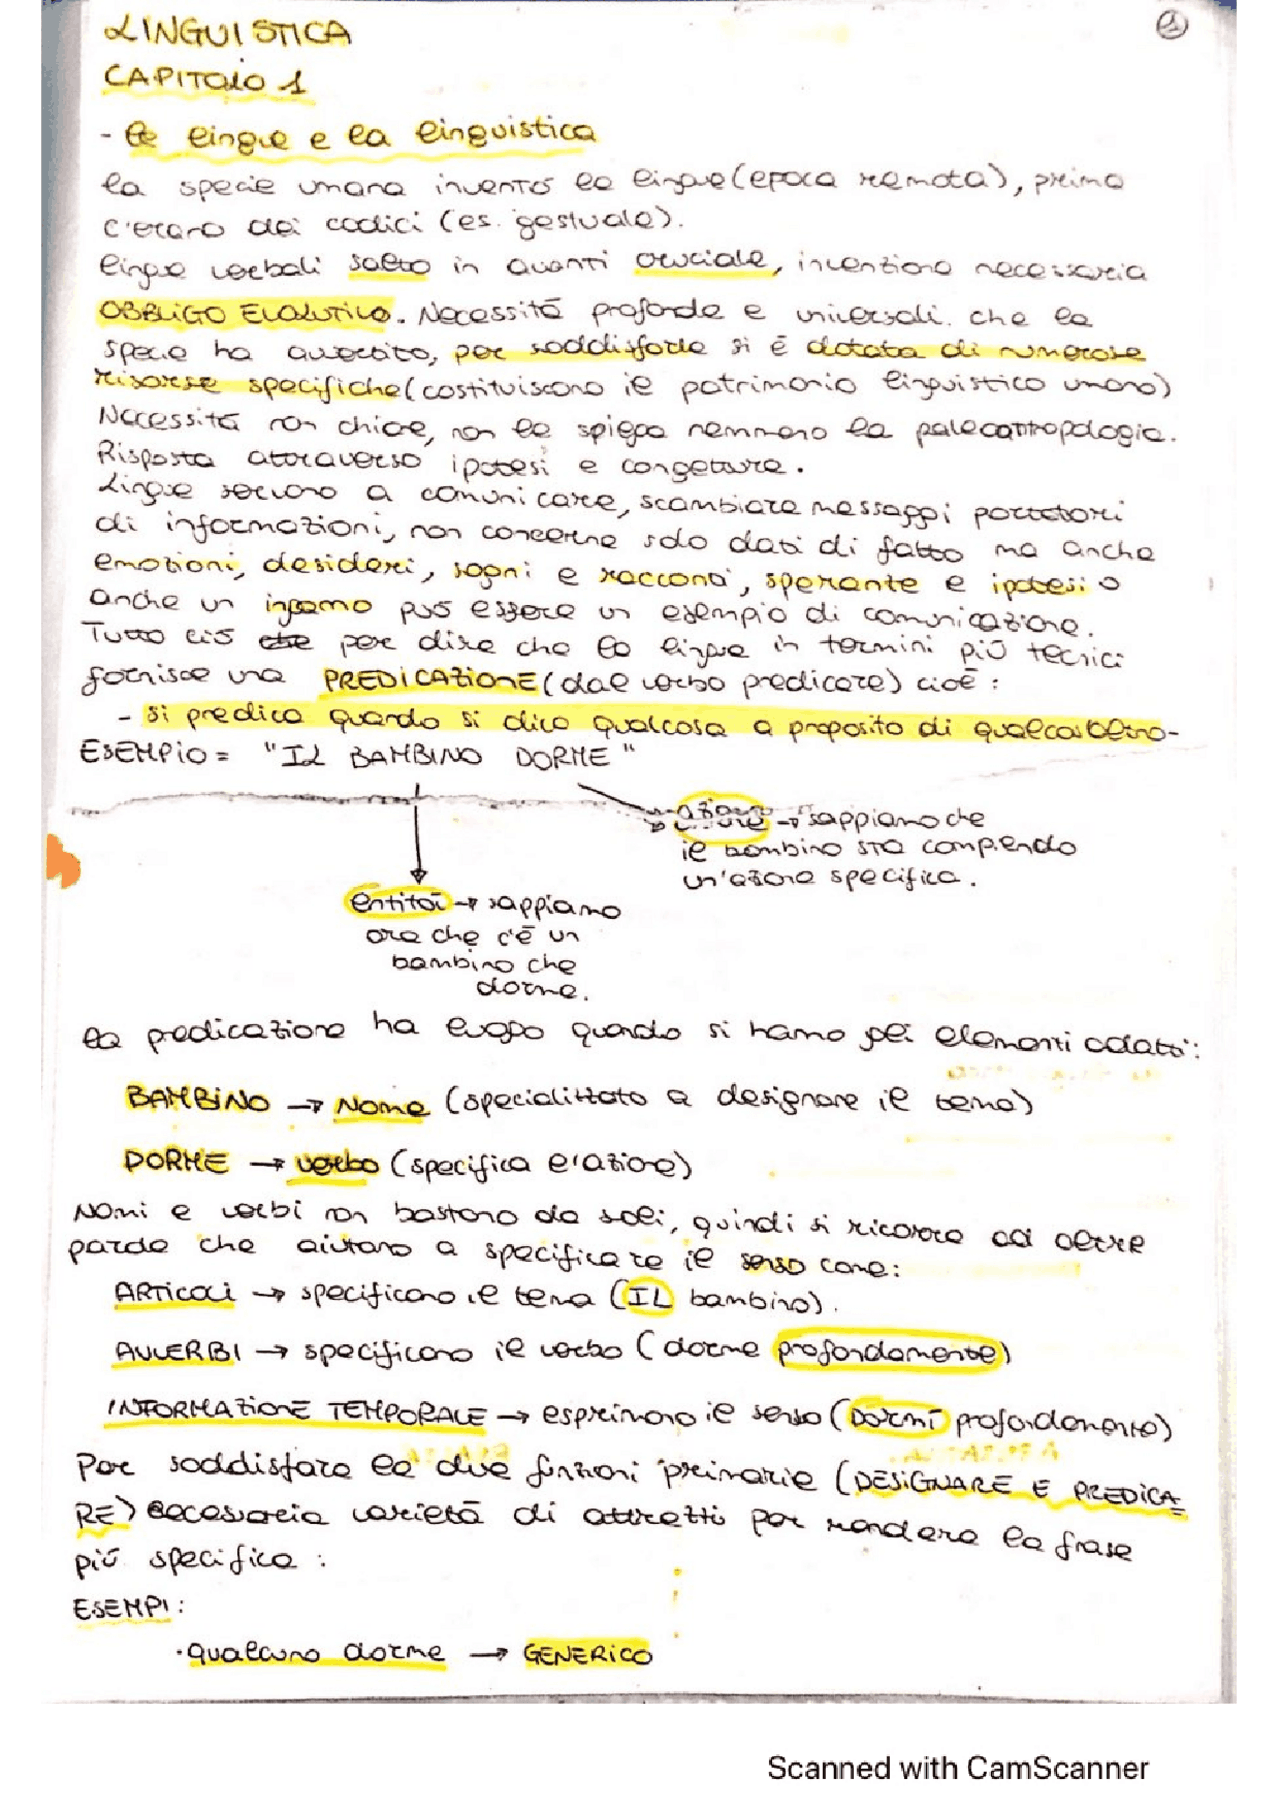 LINGUISTICA
CAPITOLO 1
- Le lingue e la linguistica
la specie umana inventò le lingue (epoca remota), prima
c'erano dei codici (es. gestuale).
lingue verbali salto in avanti cruciale, invenzione necessaria
OBBLIGO EVOLUTIVO. Necessità profonde e universali. che la
specie ha avvertito, per soddisfarle si è dotata di numerose
risorse specifiche (costituiscono il patrimonio linguistico umano)
Necessità non chiare, non le spiega nemmeno la paleoantropologia.
Risposta attraverso ipotesi e congetture.
Lingue servono a comunicare, scambiare messaggi portatori
di informazioni, non concerne solo dati di fatto ma anche
emozioni, desideri, sogni e racconti, speranze e ipotesi o
anche un inganno può essere un esempio di comunicazione.
Tutto ciò che per dire che la lingua in termini più tecnici
fornisce una PREDICAZIONE (dal verbo predicare) cioè:
- si predica quando si dice qualcosa a proposito di qualcos'altro-
ESEMPIO = "IL BAMBINO DORME"
azione → sappiamo che
il bambino sta compiendo
un'azione specifica.
entità → sappiamo
ora che c'è un
bambino che
dorme.
la predicazione ha luogo quando si hanno gli elementi adatti:
BAMBINO → Nome (specializzato a designare il tema)
DORME → verbo (specifica l'azione)
Nomi e verbi non bastano da soli, quindi si ricorre ad altre
parole che aiutano a specificare il senso come:
ARTICOLI → specificano il tema (IL bambino).
AVVERBI → specificano il verbo (dorme profondamente)
INFORMAZIONE TEMPORALE → esprimono il senso (DORMÌ profondamente)
Per soddisfare le due funzioni primarie (DESIGNARE E PREDICA
RE) necessaria varietà di attrezzi per rendere la frase
più specifica :
ESEMPI:
· qualcuno dorme → GENERICO
Scanned with CamScanner